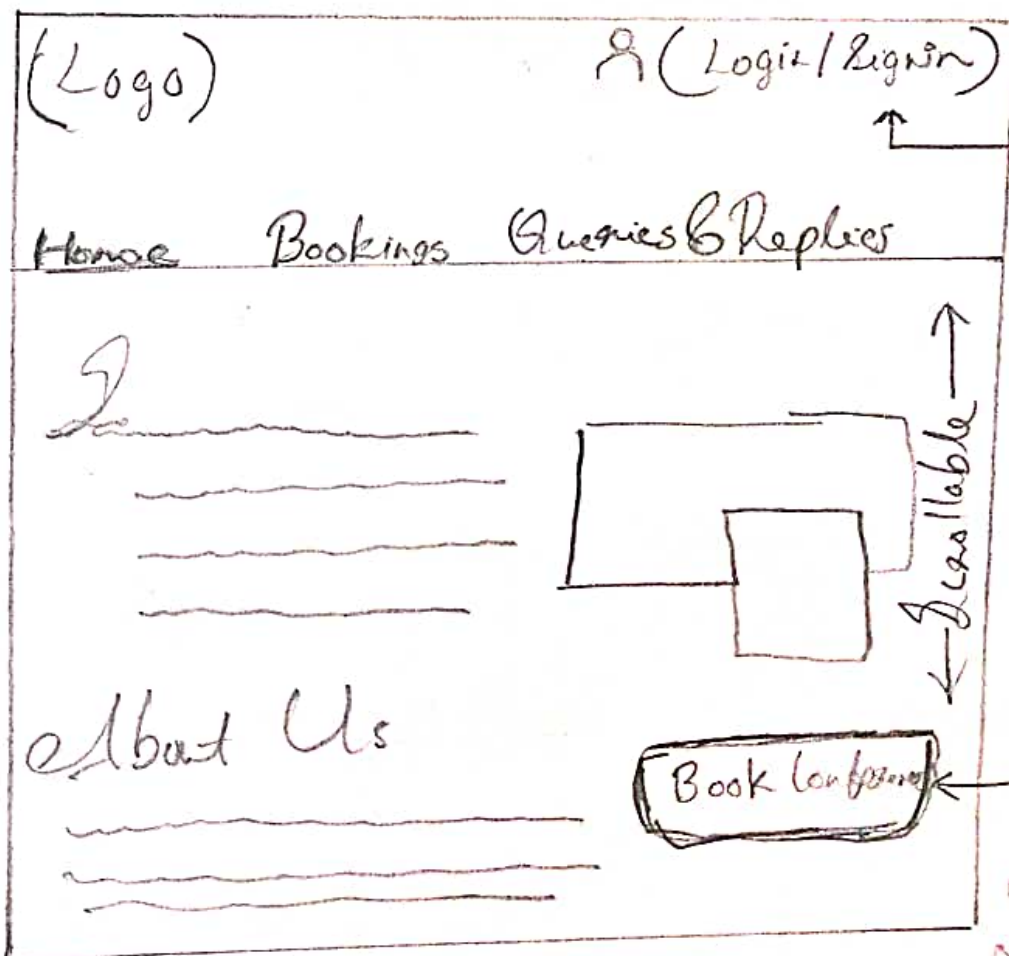 (Logo)
(Login/Signin)
Home Bookings Queries & Replies
Scrollable
About Us
Book Conference